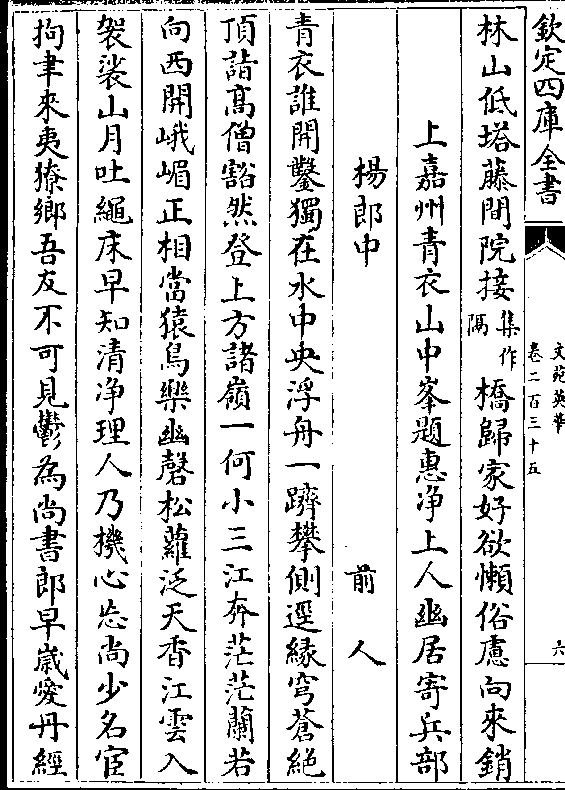 欽定四庫全書
文苑英華
卷二百三十五
六
林山低塔藤間院接集作隅橋歸家好欲懶俗慮向來銷
上嘉州青衣山中峯題惠净上人幽居寄兵部
楊郎中
前人
青衣誰開鑿獨在水中央浮舟一躋攀側逕緣穹蒼絶
頂詣高僧豁然登上方諸嶺一何小三江奔茫茫蘭若
向西開峨嵋正相當猿鳥樂幽磬松蘿泛天香江雲入
袈裟山月吐繩床早知清净理人乃機心忘尚少名宦
拘聿來夷獠鄉吾友不可見鬱為尚書郎早嵗愛丹經